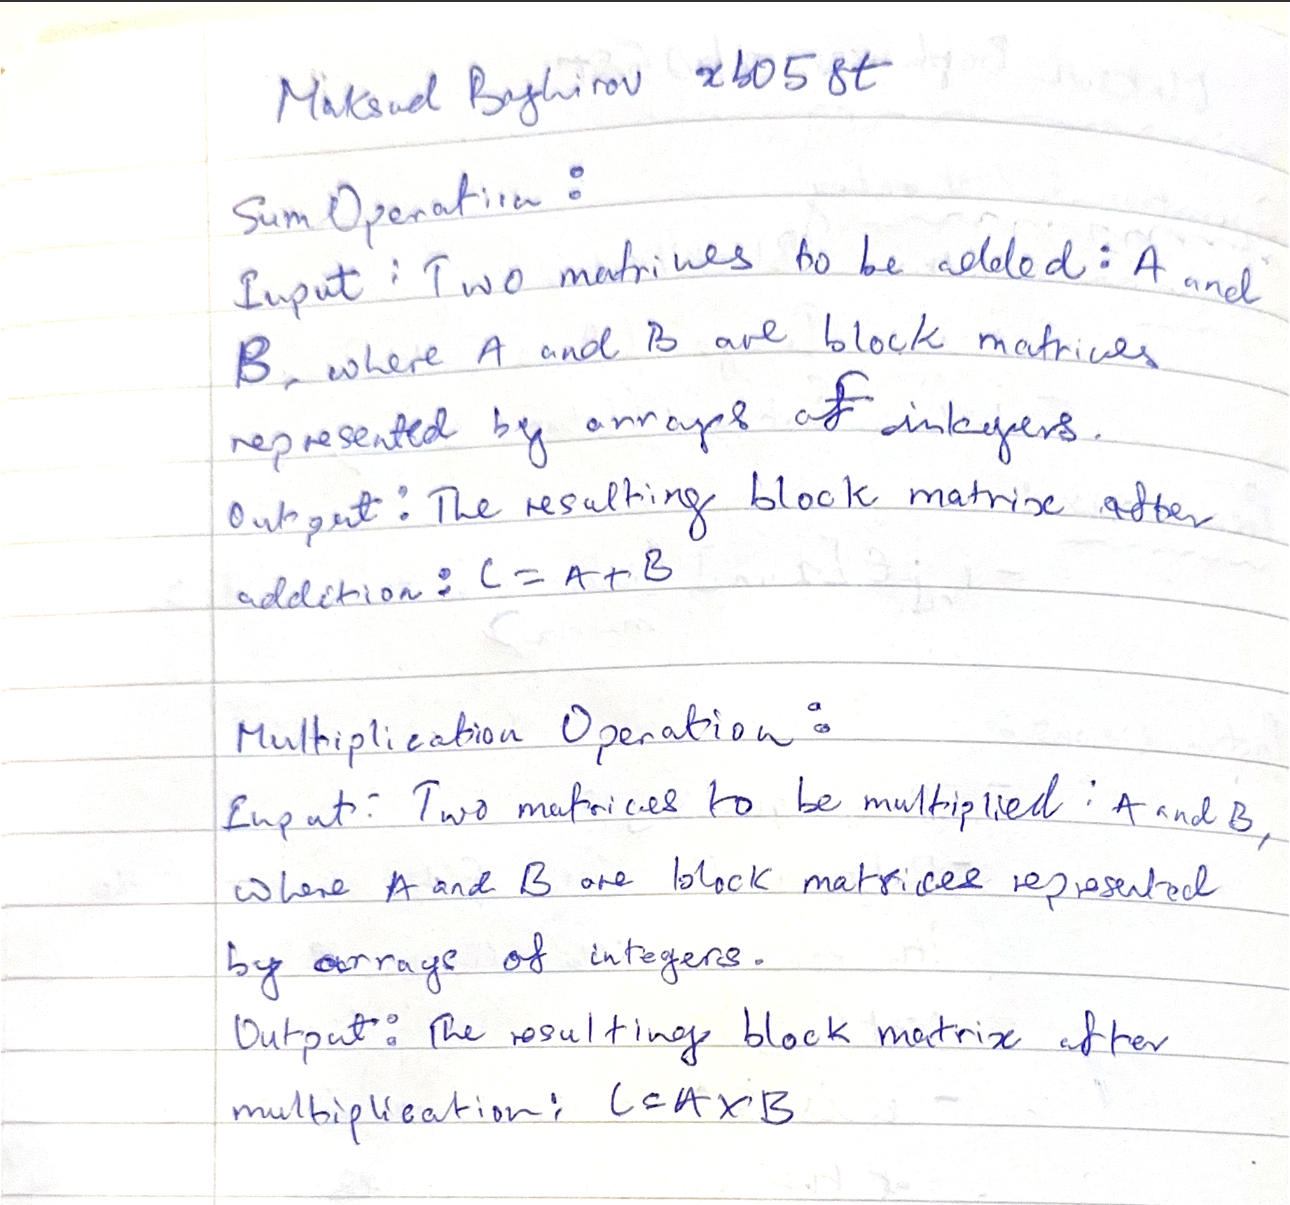 Maksud Baghirov xb058t
Sum Operation:
Input: Two matrices to be added: A and
B, where A and B are block matrices
represented by arrays of integers.
Output: The resulting block matrix after
addition: C = A + B
Multiplication Operation:
Input: Two matrices to be multiplied: A and B,
where A and B are block matrices represented
by arrays of integers.
Output: The resulting block matrix after
multiplication: C = A x B